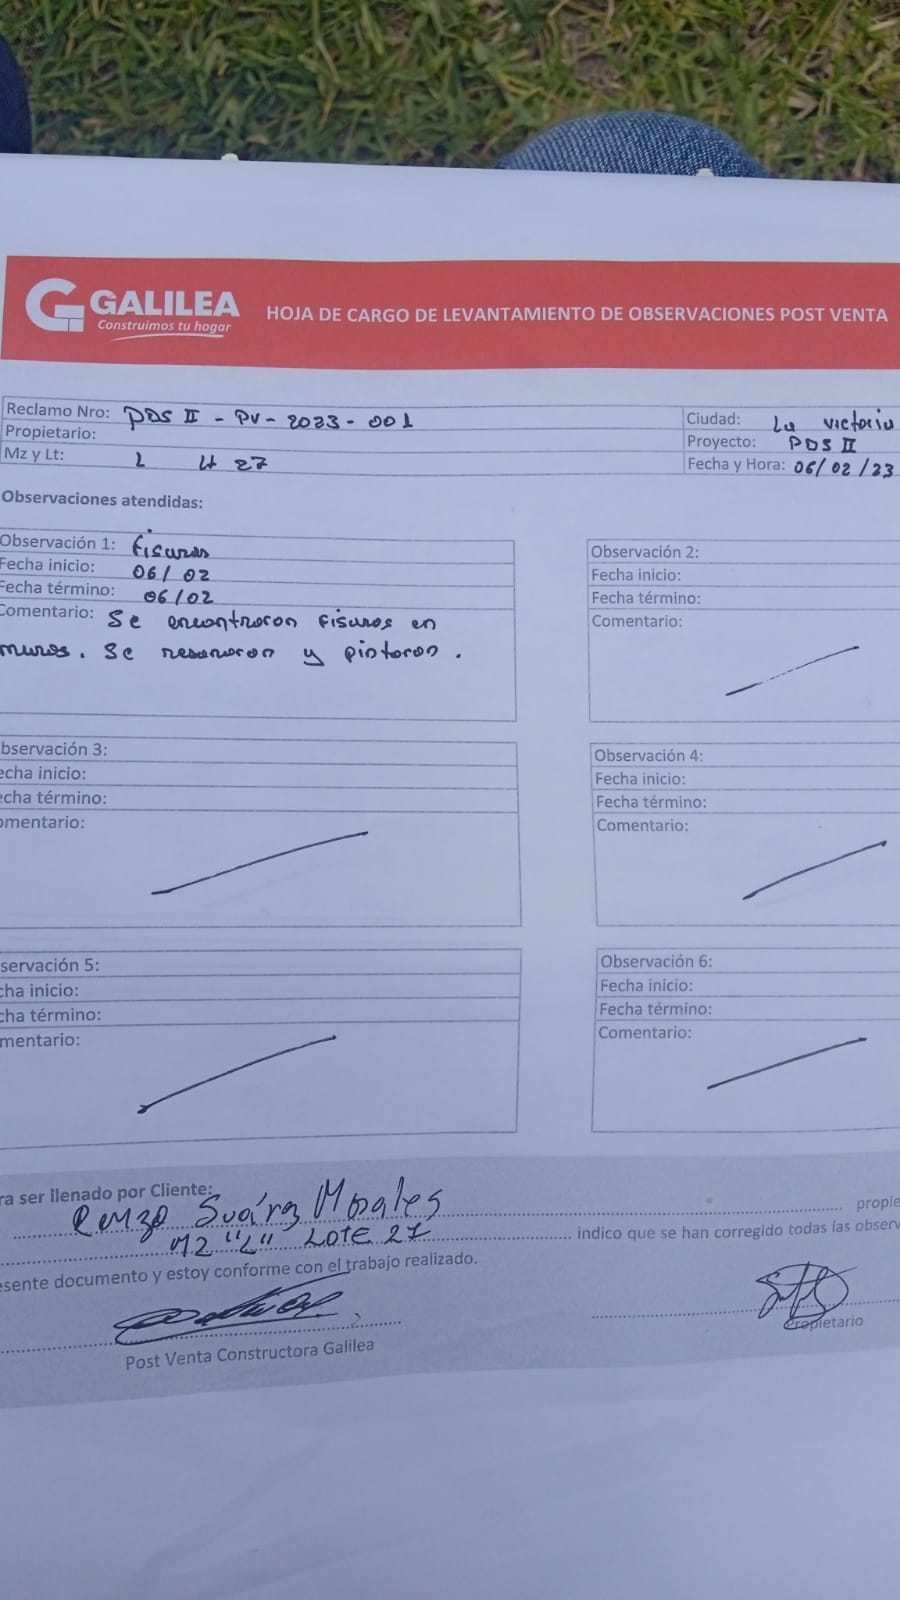 GALILEA
Construimos tu hogar
HOJA DE CARGO DE LEVANTAMIENTO DE OBSERVACIONES POST VENTA
Reclamo Nro: PDS II - PV - 2023 - 001
Propietario:
Mz y Lt: L Lt 27
Ciudad: La victoria
Proyecto: PDS II
Fecha y Hora: 06/02/23
Observaciones atendidas:
Observación 1: Fisuras
Fecha inicio: 06/02
Fecha término: 06/02
Comentario: Se encontraron fisuras en
muros. Se resanaron y pintaron.
Observación 2:
Fecha inicio:
Fecha término:
Comentario:
bservación 3:
echa inicio:
echa término:
omentario:
Observación 4:
Fecha inicio:
Fecha término:
Comentario:
servación 5:
cha inicio:
cha término:
mentario:
Observación 6:
Fecha inicio:
Fecha término:
Comentario:
ra ser llenado por Cliente:
Renzo Suárez Morales propie
MZ "L" LOTE 27 indico que se han corregido todas las observ
esente documento y estoy conforme con el trabajo realizado.
Post Venta Constructora Galilea
Propietario